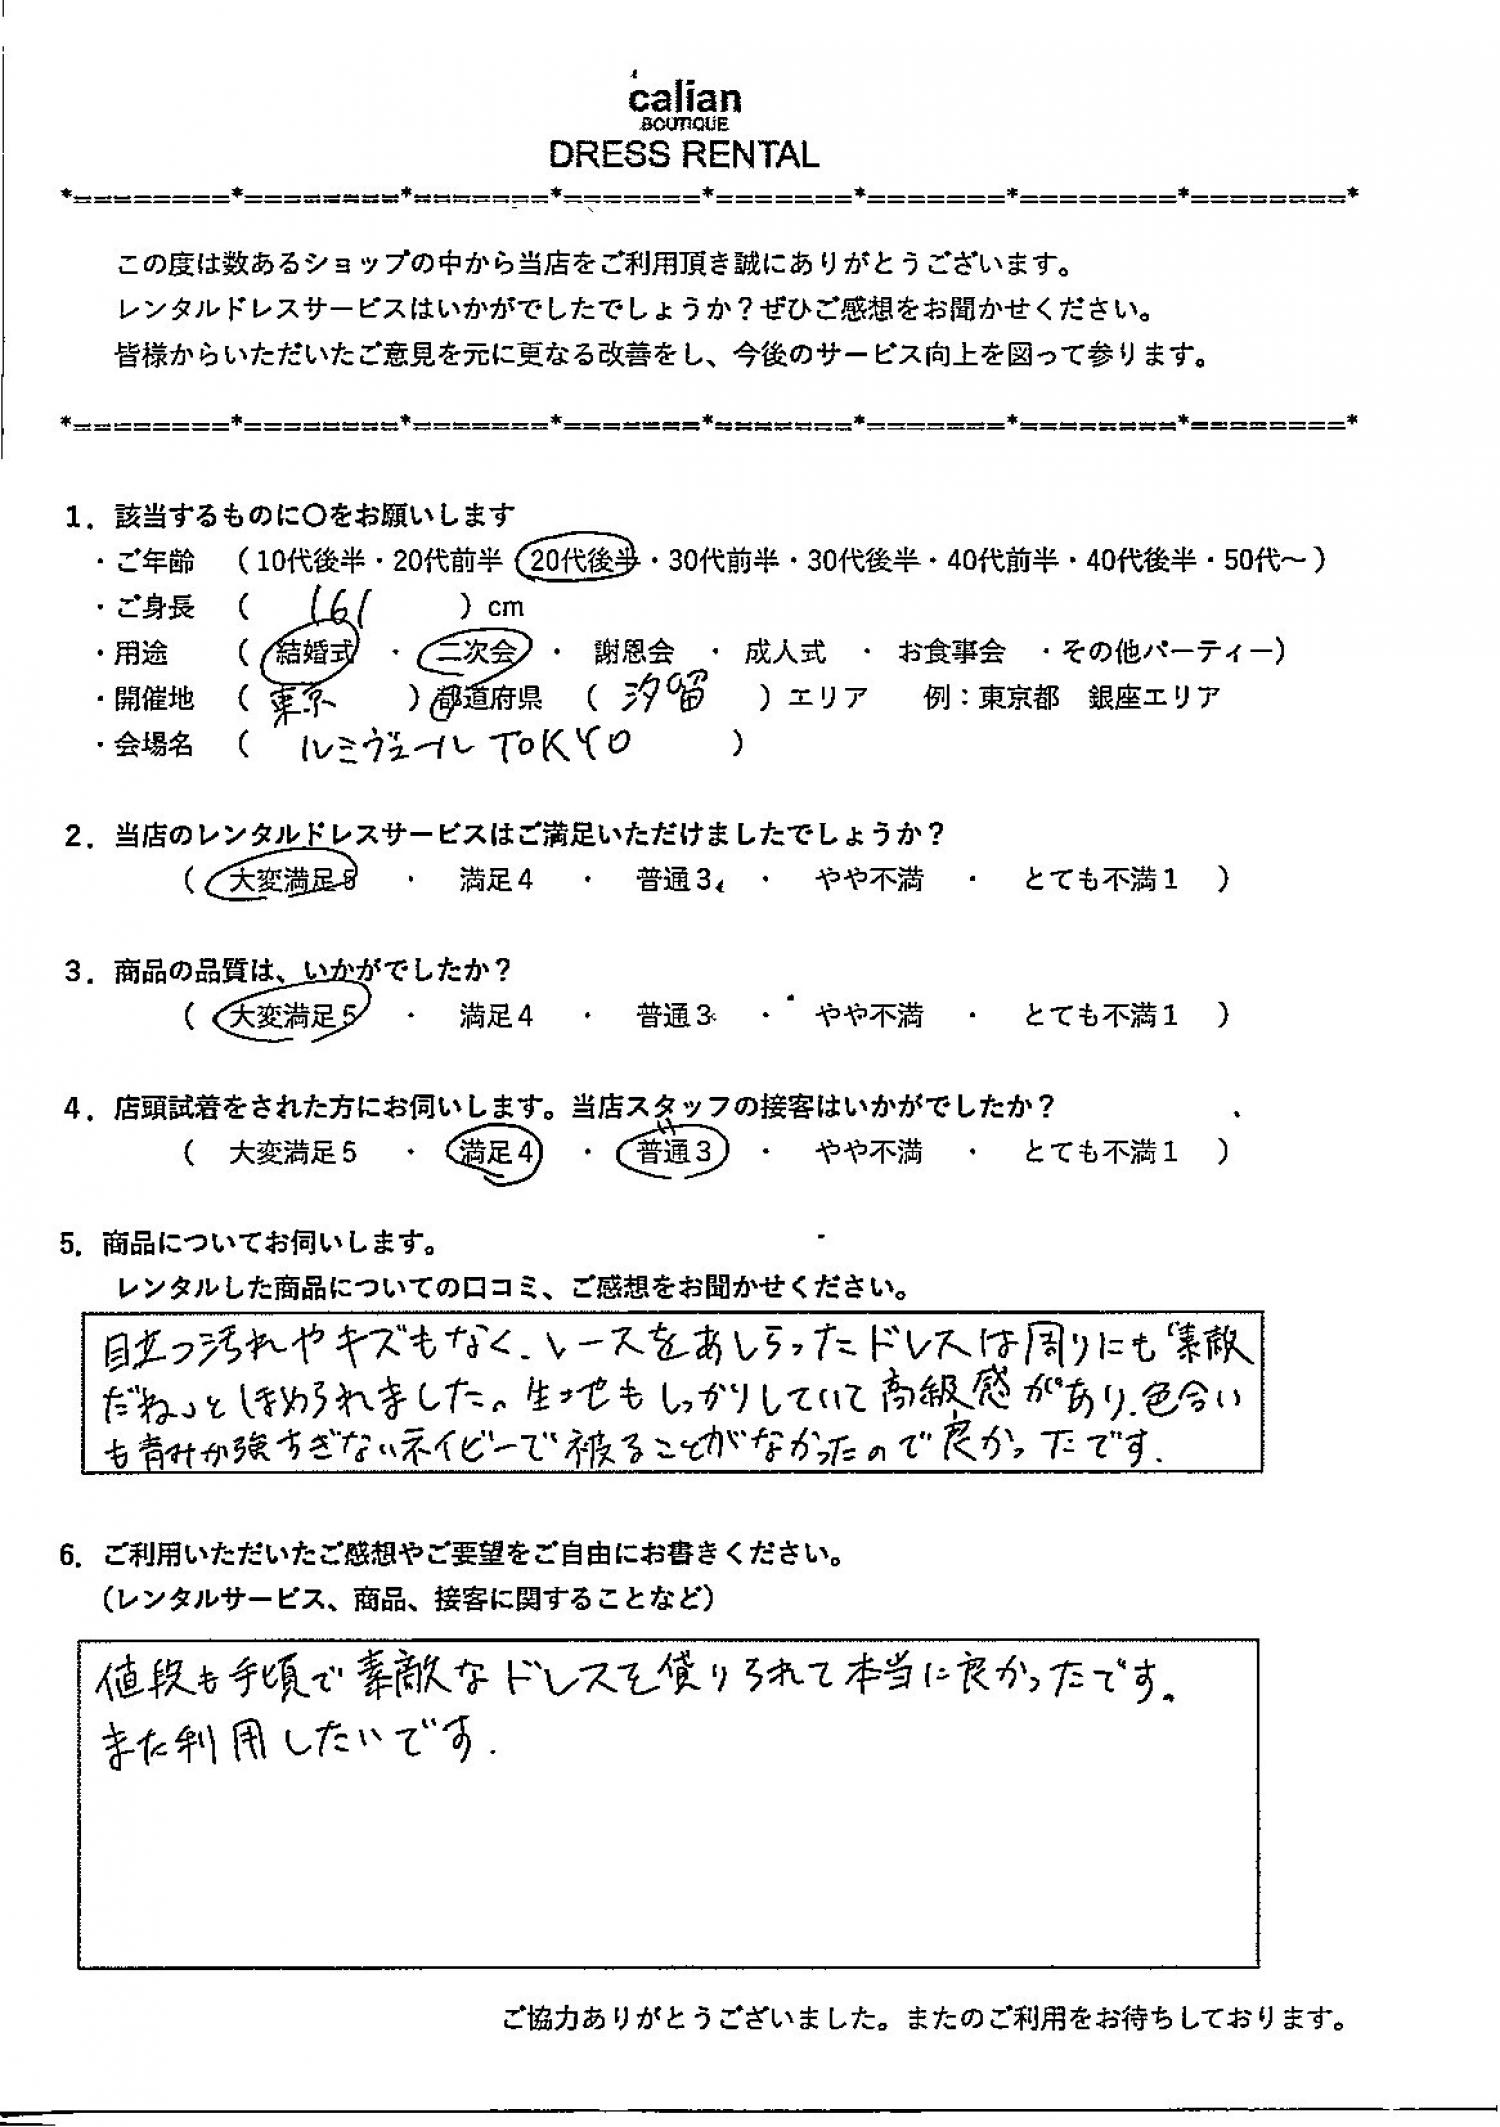 calian
BOUTIQUE
DRESS RENTAL
*========*========*=======*=======*=======*=======*========*========*
この度は数あるショップの中から当店をご利用頂き誠にありがとうございます。
レンタルドレスサービスはいかがでしたでしょうか？ぜひご感想をお聞かせください。
皆様からいただいたご意見を元に更なる改善をし、今後のサービス向上を図って参ります。
*========*========*=======*=======*=======*=======*========*========*
1．該当するものに〇をお願いします
・ご年齢 （10代後半・20代前半 20代後半・30代前半・30代後半・40代前半・40代後半・50代～）
・ご身長 （ 161 ）cm
・用途 （ 結婚式 ・ 二次会 ・ 謝恩会 ・ 成人式 ・ お食事会 ・その他パーティー）
・開催地 （ 東京 ）都道府県 （ 汐留 ）エリア 例：東京都 銀座エリア
・会場名 （ ルミヴェール TOKYO ）
2．当店のレンタルドレスサービスはご満足いただけましたでしょうか？
（ 大変満足5 ・ 満足4 ・ 普通3 ・ やや不満 ・ とても不満1 ）
3．商品の品質は、いかがでしたか？
（ 大変満足5 ・ 満足4 ・ 普通3 ・ やや不満 ・ とても不満1 ）
4．店頭試着をされた方にお伺いします。当店スタッフの接客はいかがでしたか？
（ 大変満足5 ・ 満足4 ・ 普通3 ・ やや不満 ・ とても不満1 ）
5．商品についてお伺いします。
レンタルした商品についての口コミ、ご感想をお聞かせください。
目立つ汚れやキズもなく、レースをあしらったドレスは周りにも「素敵
だね」とほめられました。生地もしっかりしていて高級感があり、色合い
も青みが強すぎないネイビーで被ることがなかったので良かったです.
6．ご利用いただいたご感想やご要望をご自由にお書きください。
（レンタルサービス、商品、接客に関することなど）
値段も手頃で素敵なドレスを借りられて本当に良かったです。
また利用したいです.
ご協力ありがとうございました。またのご利用をお待ちしております。